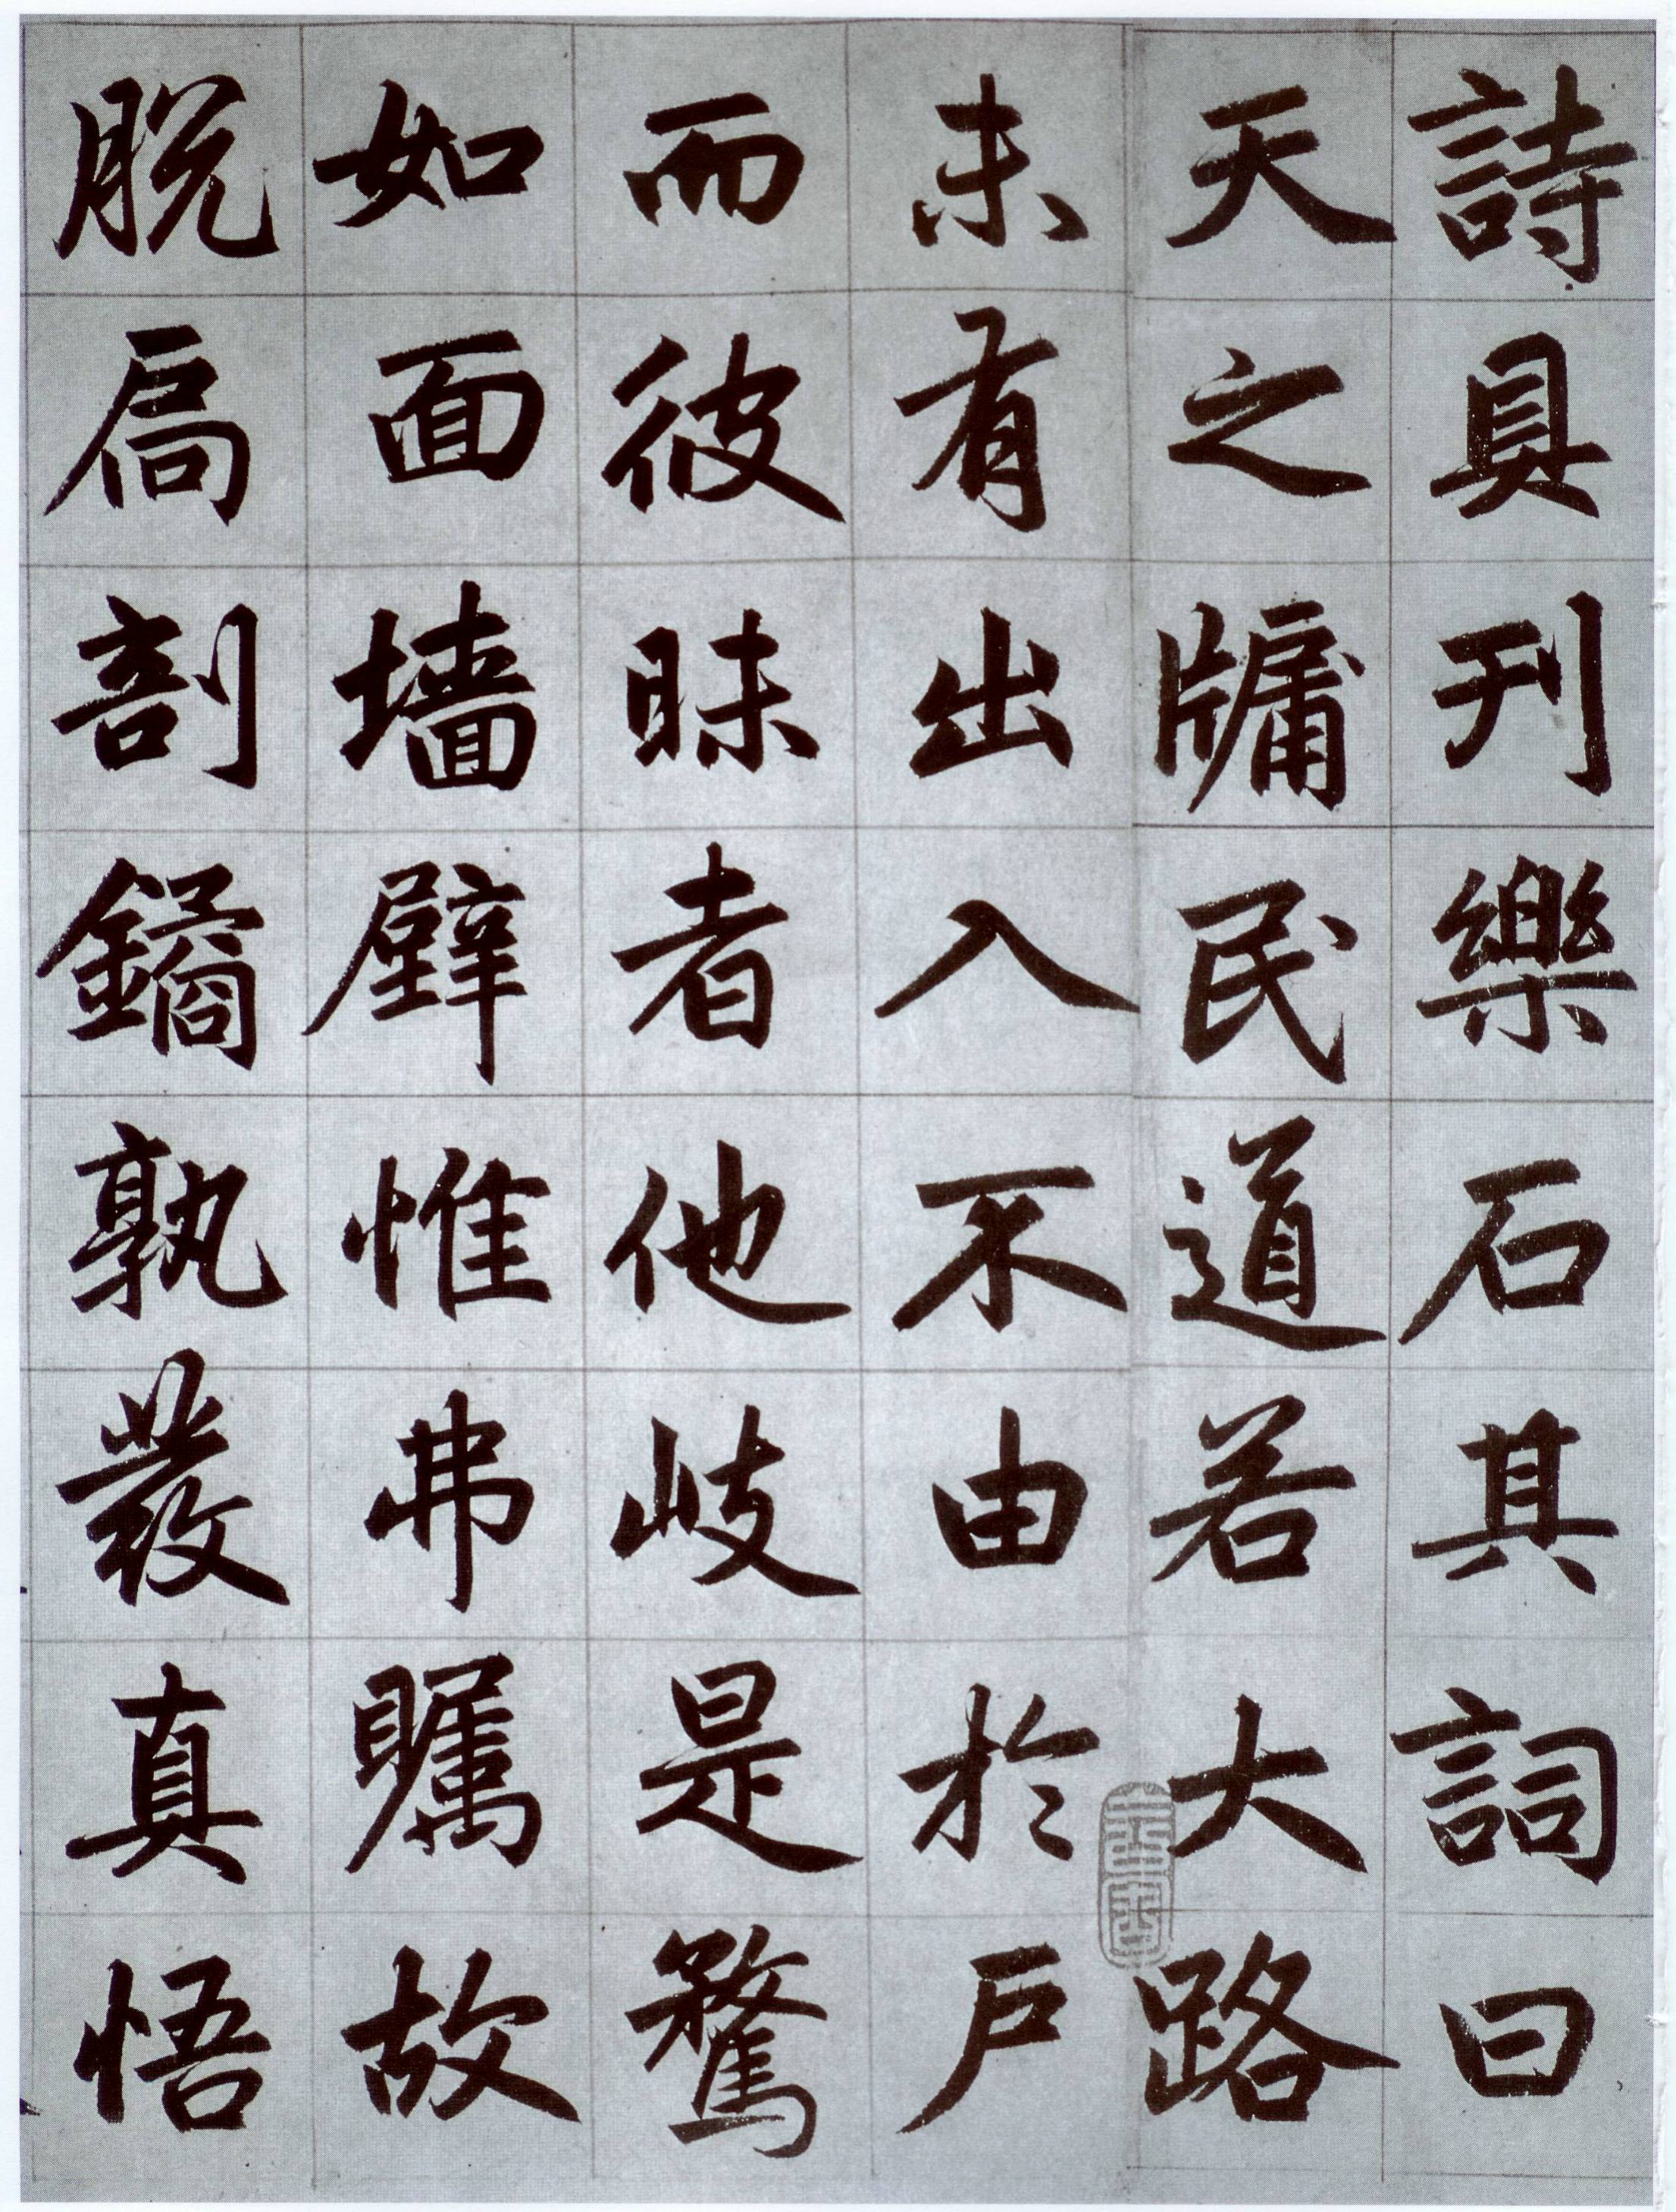 詩具刊樂石其詞曰
天之牗民道若大路
未有出入不由於戶
而彼昧者他岐是騖
如面墻壁惟弗矚故
脱扄剖鐍孰發真悟